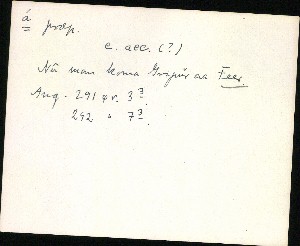 á
præp.
c. acc. (?)
Nú man koma Grípúr aa Feer
Aug. 291 xr. 3
292 " 7